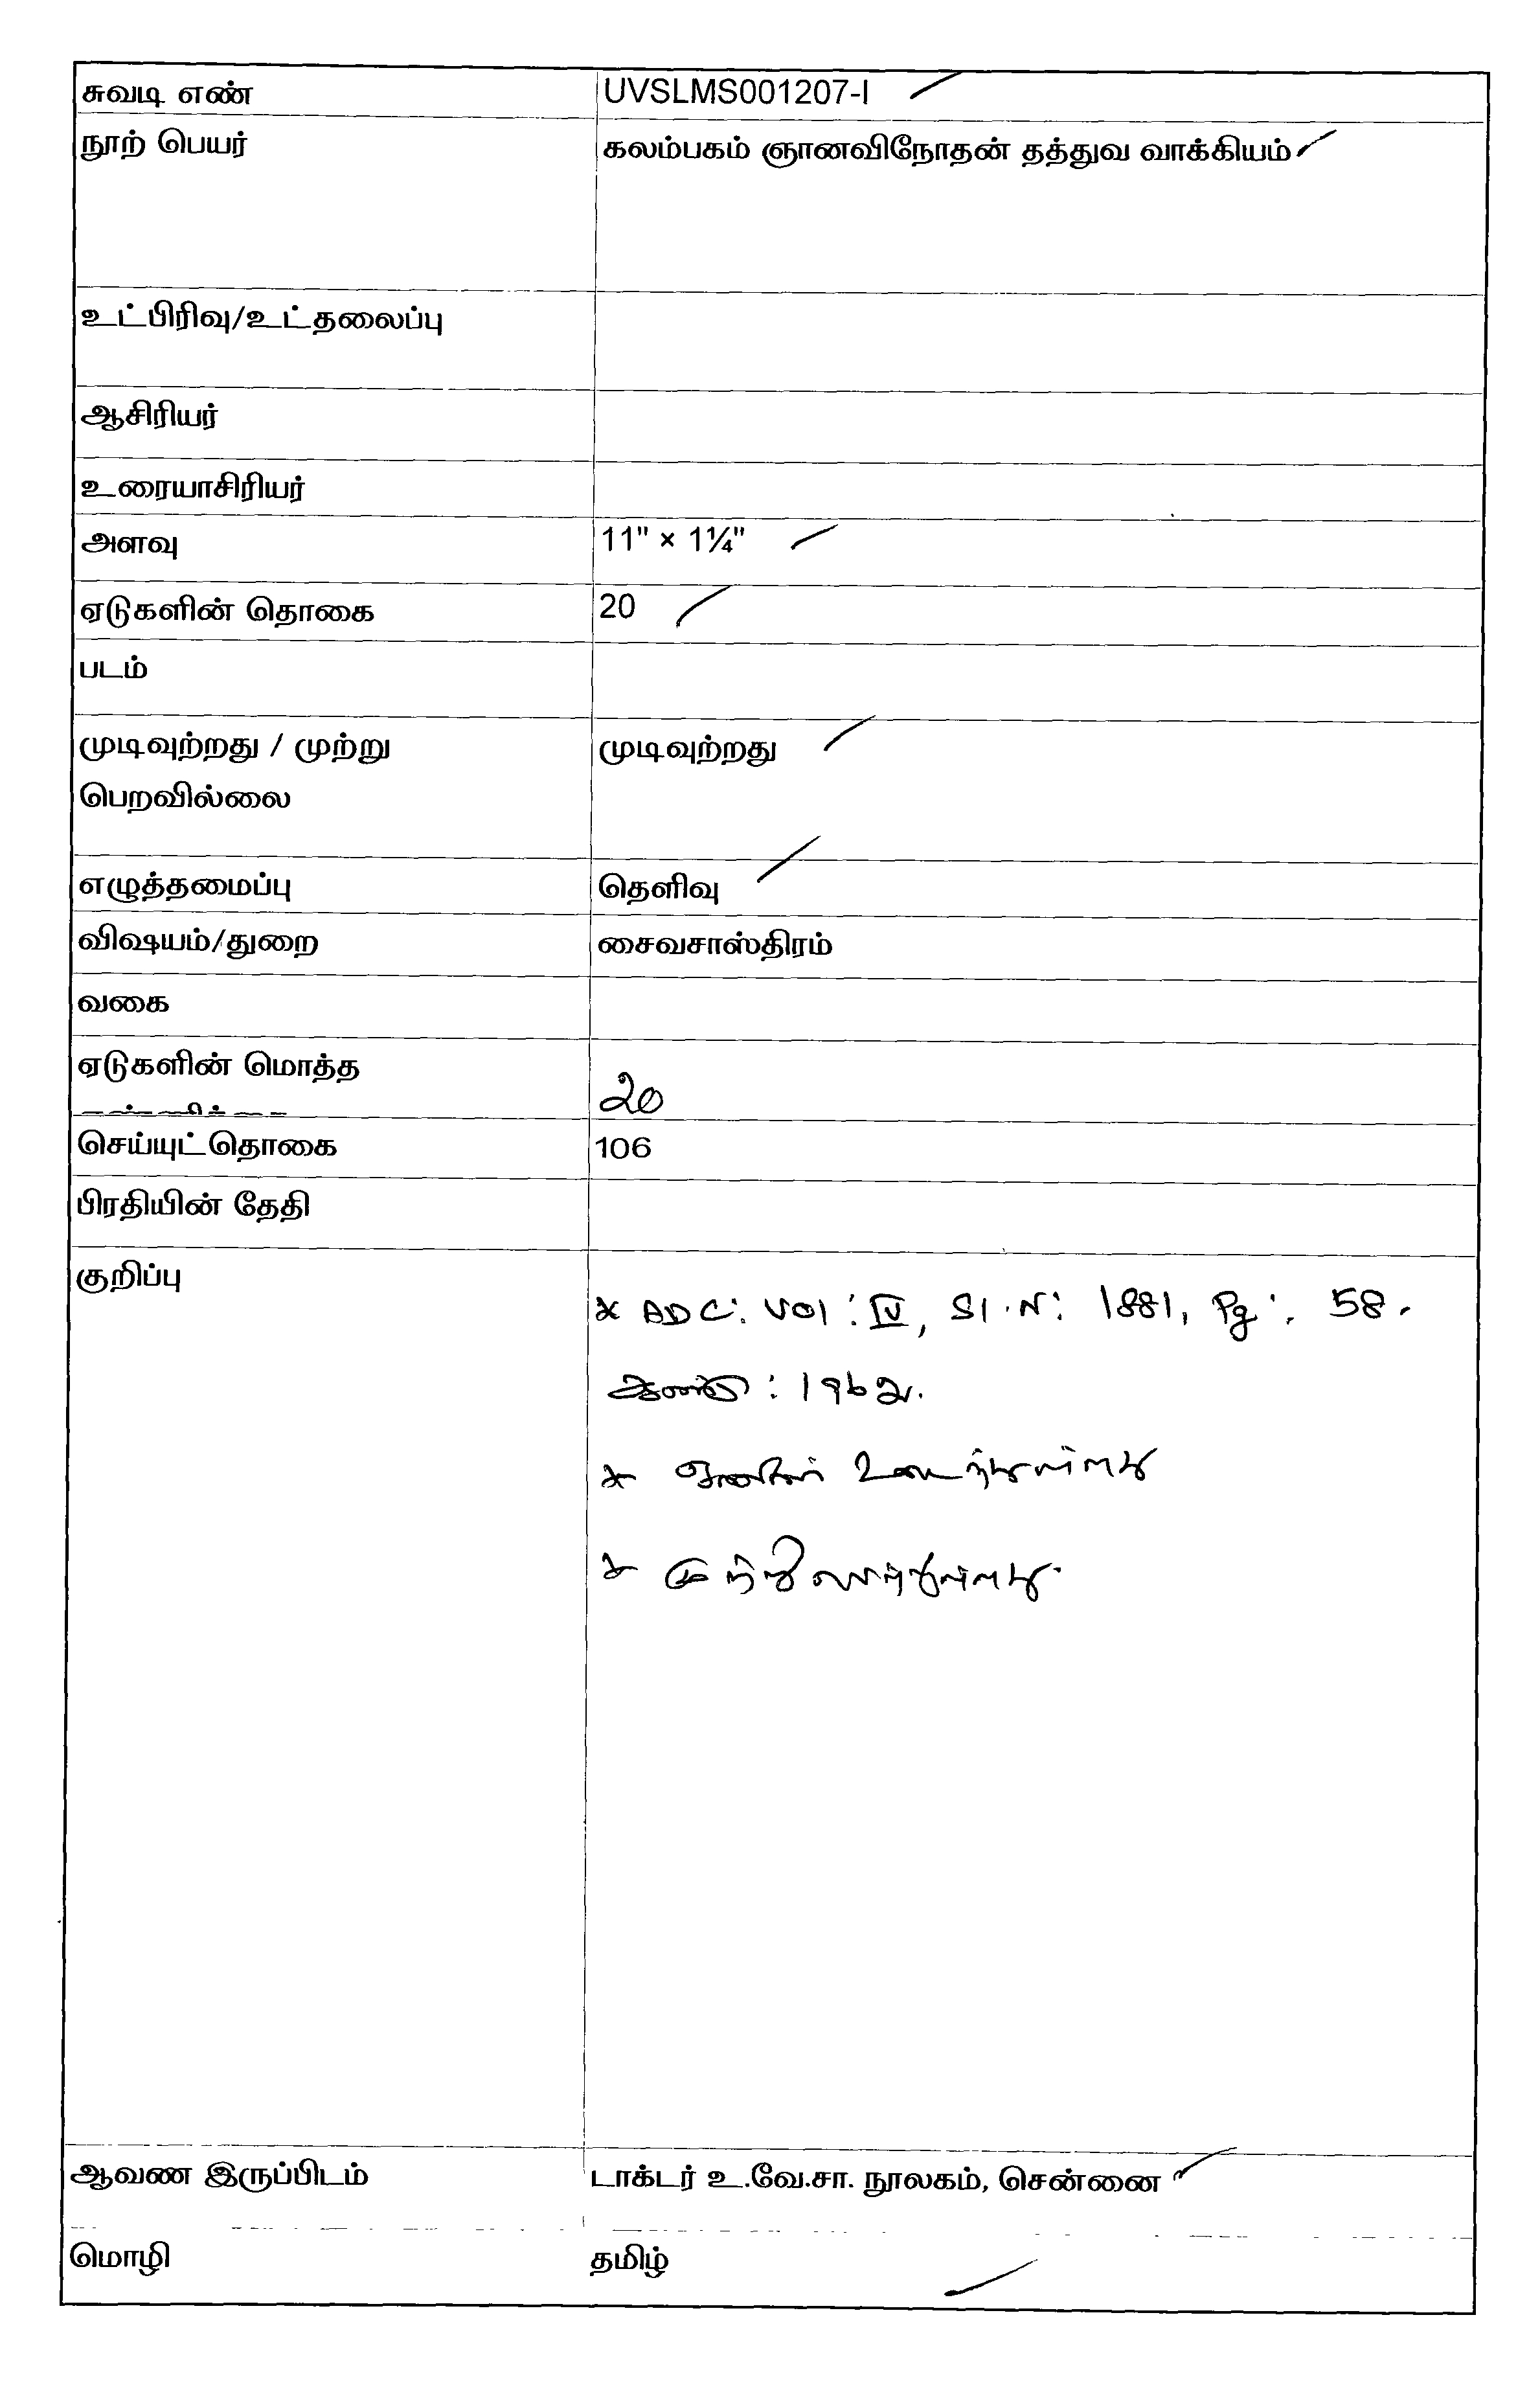 சுவடி எண் UVSLMS001207-I
நூற் பெயர் கலம்பகம் ஞானவிநோதன் தத்துவ வாக்கியம்
உட்பிரிவு/உட்தலைப்பு
ஆசிரியர்
உரையாசிரியர்
அளவு 11" × 1¼"
ஏடுகளின் தொகை 20
படம்
முடிவுற்றது / முற்று முடிவுற்றது
பெறவில்லை
எழுத்தமைப்பு தெளிவு
விஷயம்/துறை சைவசாஸ்திரம்
வகை
ஏடுகளின் மொத்த
20
செய்யுட்தொகை 106
பிரதியின் தேதி
குறிப்பு
* ADC: Vol: IV, Sl.N: 1881, Pg: 58.
ஆண்டு: 1962.
* ஏடுகள் உடைந்துள்ளது
* முற்றிலுமாகவுள்ளது.
ஆவண இருப்பிடம் டாக்டர் உ.வே.சா. நூலகம், சென்னை
மொழி தமிழ்